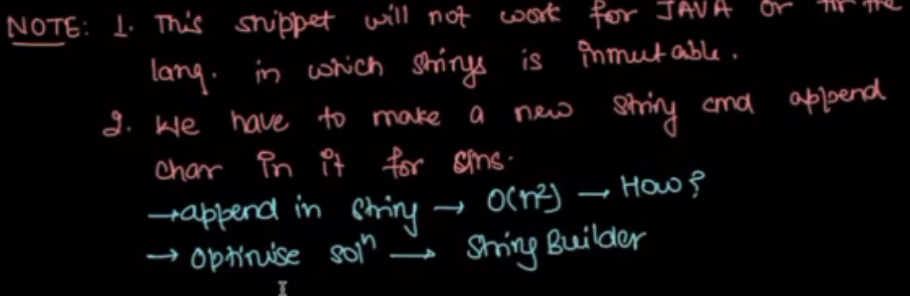 NOTE: 1. This snippet will not work for JAVA or in the
lang. in which strings is inmutable.
2. We have to make a new string and append
char in it for sins.
→append in string → O(n²) → How?
→ optimise solⁿ → String Builder